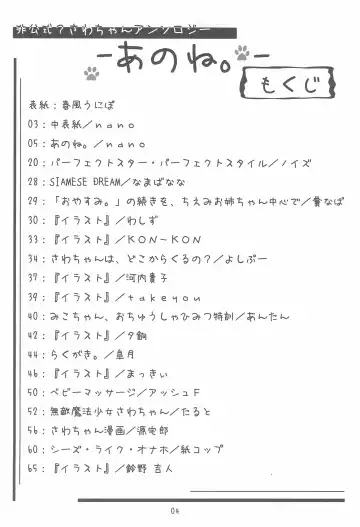 非公式?さわちゃんアンソロジー
-あのね。-
もくじ
表紙:春風うにぽ
03:中表紙/nano
05:あのね。/nano
20:パーフェクトスター・パーフェクトスタイル/ノイズ
28:SIAMESE DREAM/なまばなな
29:「おやすみ。」の続きを、ちえみお姉ちゃん中心で/糞なば
30:『イラスト』/わしず
33:『イラスト』/KON〜KON
34:さわちゃんは、どこからくるの?/よしぷー
37:『イラスト』/河内貴子
39:『イラスト』/takeyou
40:みこちゃん、おちゅうしゃひみつ特訓/あんたん
42:『イラスト』/夕餉
44:らくがき。/皐月
46:『イラスト』/まっきぃ
50:ベビーマッサージ/アッシュF
52:無敵魔法少女さわちゃん/たると
56:さわちゃん漫画/源定郎
60:シーズ・ライク・オナホ/紙コップ
65:『イラスト』/鈴野 吉人
04